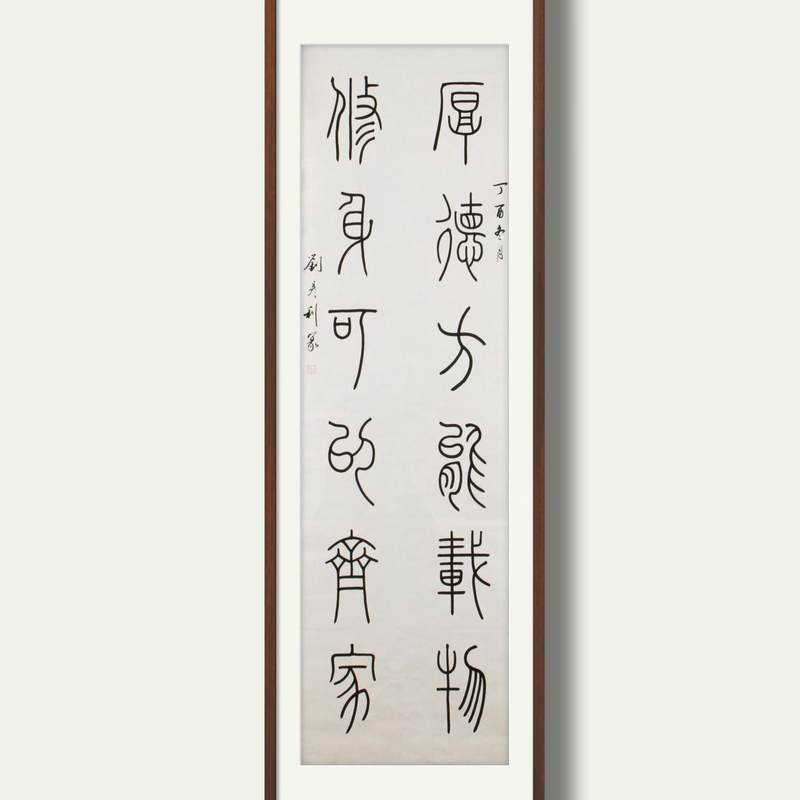 厚德方能載物
丁酉冬月
修身可以齊家
劉彥利篆